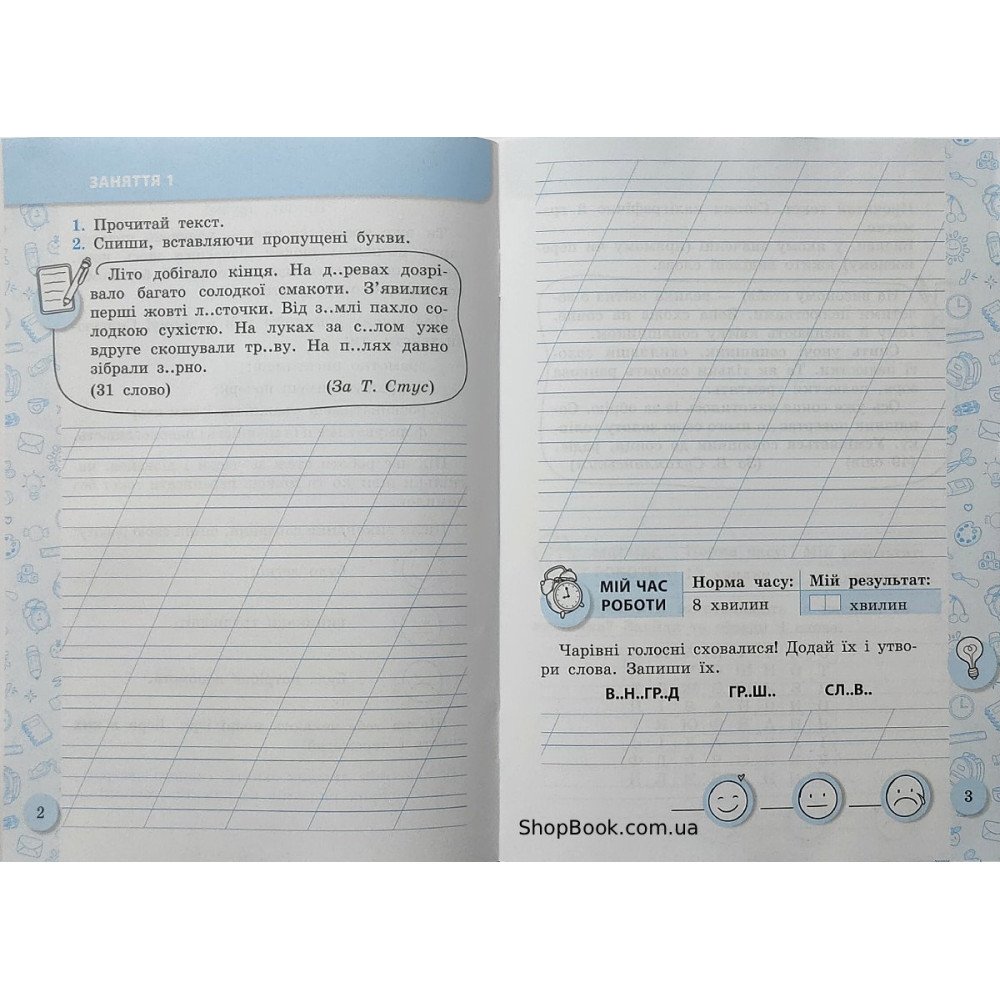 ЗАНЯТТЯ 1
1. Прочитай текст.
2. Спиши, вставляючи пропущені букви.
Літо добігало кінця. На д..ревах дозрі-
вало багато солодкої смакоти. З’явилися
перші жовті л..сточки. Від з..млі пахло со-
лодкою сухістю. На луках за с..лом уже
вдруге скошували тр..ву. На п..лях давно
зібрали з..рно.
(31 слово) (За Т. Стус)
2
МІЙ ЧАС РОБОТИ
Норма часу: Мій результат:
8 хвилин хвилин
Чарівні голосні сховалися! Додай їх і утво-
ри слова. Запиши їх.
В..Н..ГР..Д ГР..Ш.. СЛ..В..
3
ShopBook.com.ua